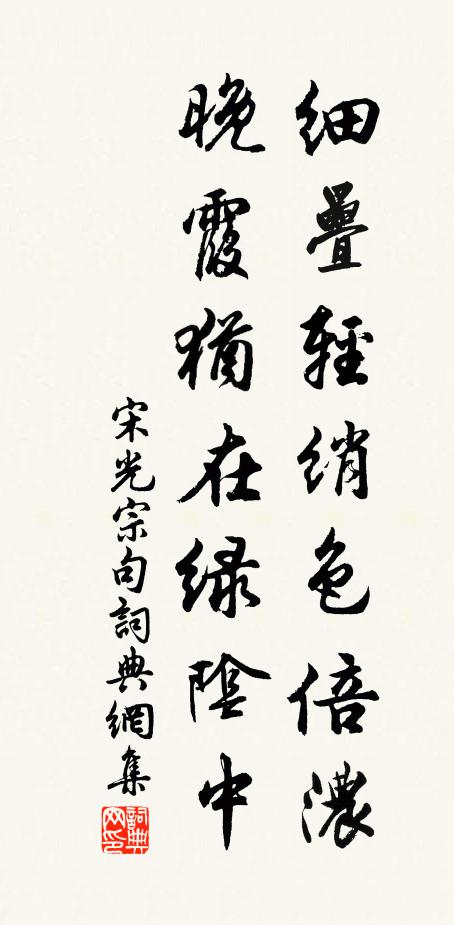 細疊輕綃色倍濃
晚霞猶在綠陰中
宋光宗句詞典網集
詞典网印